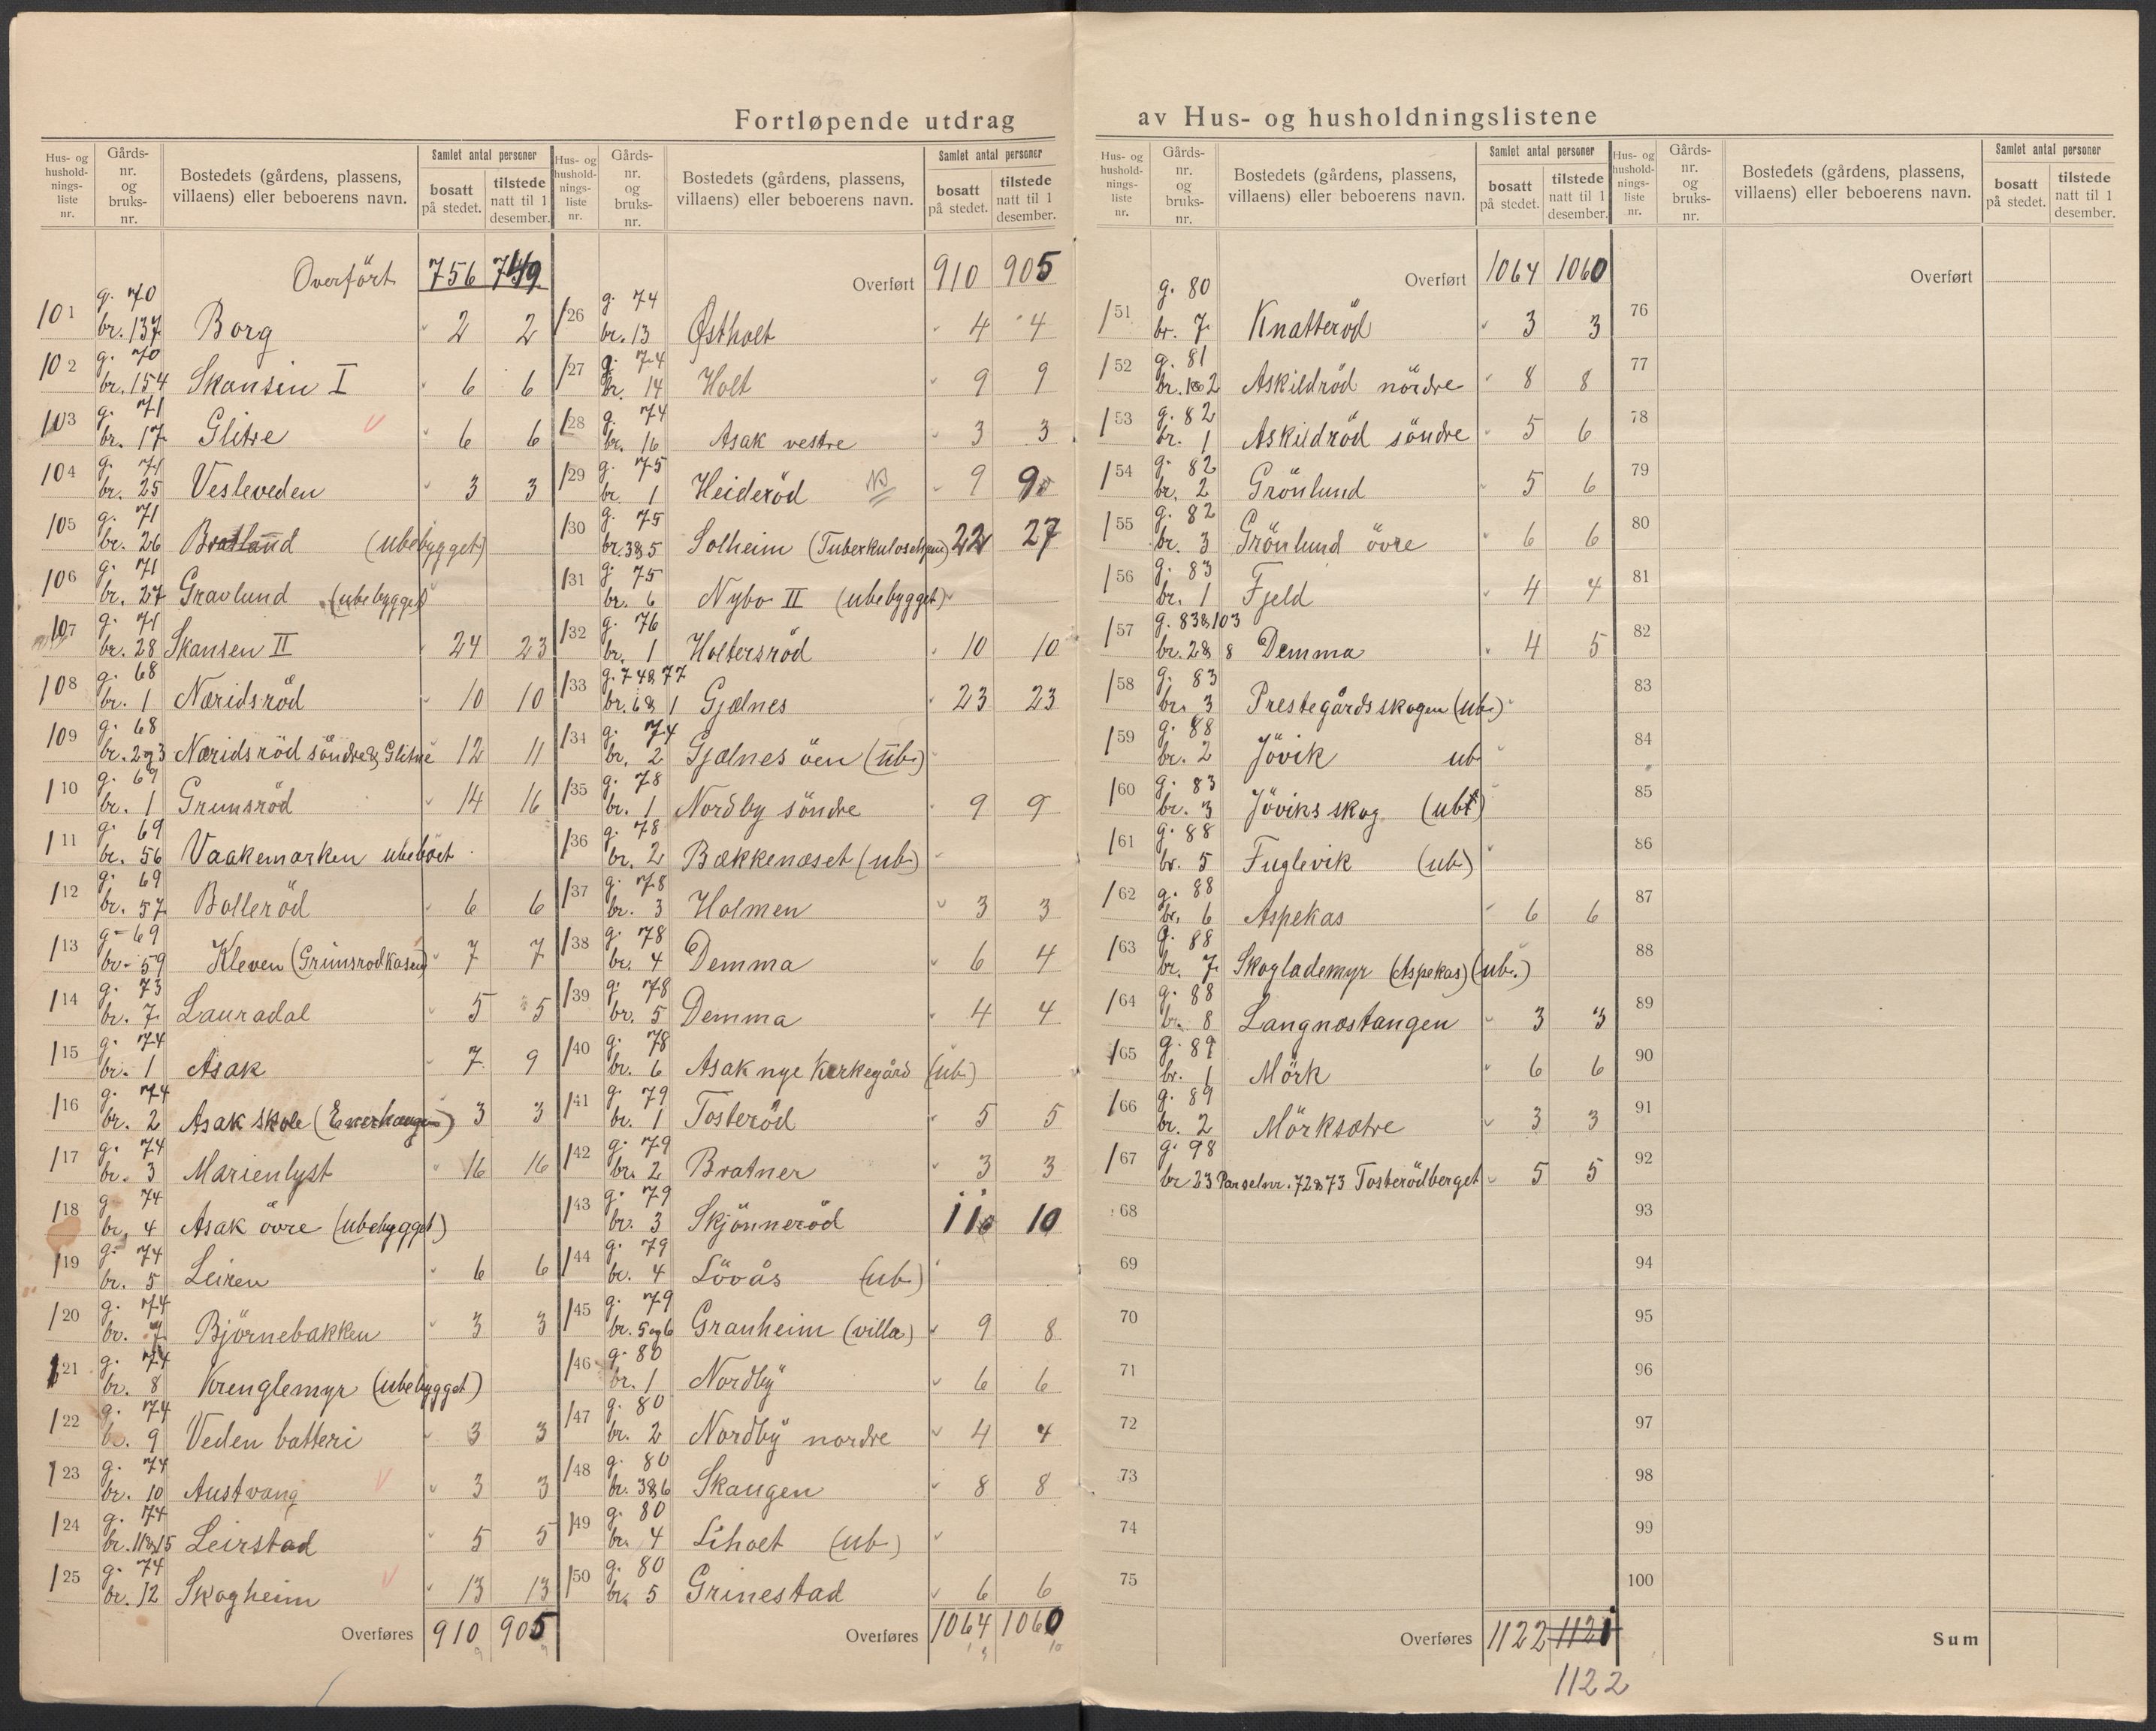 Fortløpende utdrag av Hus- og husholdningslistene
Hus- og husholdningsliste nr. | Gårds-nr. og bruks-nr. | Bostedets (gårdens, plassens, villaens) eller beboerens navn. | Samlet antal personer | bosatt på stedet. | tilstede natt til 1 desember.
Overført 756 749
101 g. 70 br. 137 Borg 2 2
102 g. 70 br. 154 Skansin I 6 6
103 g. 71 br. 17 Glitre 6 6
104 g. 71 br. 25 Vesleveden 3 3
105 g. 71 br. 26 Bratland (ubebygget)
106 g. 71 br. 27 Gravlund (ubebygget)
107 g. 71 br. 28 Skansen II 24 23
108 g. 68 br. 1 Næridsröd 10 10
109 g. 68 br. 2og3 Næridsröd söndre & Glitne 12 11
110 g. 69 br. 1 Grimsröd 14 16
111 g. 69 br. 56 Vaakemarken ubeböet
112 g. 69 br. 57 Bolleröd 6 6
113 g. 69 br. 59 Kleven (Grimsrodkasen) 7 7
114 g. 73 br. 7 Lauradal 5 5
115 g. 74 br. 1 Asak 7 9
116 g. 74 br. 2 Asak skole (Ekerhaugen) 3 3
117 g. 74 br. 3 Marienlyst 16 16
118 g. 74 br. 4 Asak övre (ubebygget)
119 g. 74 br. 5 Leiren 6 6
120 g. 74 br. 7 Björnebakken 3 3
121 g. 74 br. 8 Krenglemyr (ubebygget)
122 g. 74 br. 9 Veden batteri 3 3
123 g. 74 br. 10 Austvang 3 3
124 g. 74 br. 11&15 Leirstad 5 5
125 g. 74 br. 12 Skogheim 13 13
Overføres 910 905
Hus- og husholdningsliste nr. | Gårds-nr. og bruks-nr. | Bostedets (gårdens, plassens, villaens) eller beboerens navn. | Samlet antal personer | bosatt på stedet. | tilstede natt til 1 desember.
Overført 910 905
126 g. 74 br. 13 Østholt 4 4
127 g. 74 br. 14 Holt 9 9
128 g. 74 br. 16 Asak vestre 3 3
129 g. 75 br. 1 Heideröd NB 9 9
130 g. 75 br. 3&5 Solheim (Tuberkulosehjem) 22 27
131 g. 75 br. 6 Nybo II (ubebygget)
132 g. 76 br. 1 Holtersröd 10 10
133 g. 74&77 br. 6&1 Gjælnes 23 23
134 g. 74 br. 2 Gjælnes öen (ub.)
135 g. 78 br. 1 Nordby söndre 9 9
136 g. 78 br. 2 Bækkenæset (ub.)
137 g. 78 br. 3 Holmen 3 3
138 g. 78 br. 4 Demma 6 4
139 g. 78 br. 5 Demma 4 4
140 g. 78 br. 6 Asak nye Kirkegård (ub.)
141 g. 79 br. 1 Tosteröd 5 5
142 g. 79 br. 2 Bratner 3 3
143 g. 79 br. 3 Skjönneröd 11 10
144 g. 79 br. 4 Lövås (ub.)
145 g. 79 br. 5og6 Granheim (villa) 9 8
146 g. 80 br. 1 Nordby 6 6
147 g. 80 br. 2 Nordby nordre 4 4
148 g. 80 br. 3&6 Skaugen 8 8
149 g. 80 br. 4 Liholt (ub.)
150 g. 80 br. 5 Grinestad 6 6
Overføres 1064 1060
Hus- og husholdningsliste nr. | Gårds-nr. og bruks-nr. | Bostedets (gårdens, plassens, villaens) eller beboerens navn. | Samlet antal personer | bosatt på stedet. | tilstede natt til 1 desember.
Overført 1064 1060
151 g. 80 br. 7 Knatteröd 3 3
152 g. 81 br. 1&2 Askildröd nördre 8 8
153 g. 82 br. 1 Askildröd söndre 5 6
154 g. 82 br. 2 Grönlund 5 6
155 g. 82 br. 3 Grönlund övre 6 6
156 g. 83 br. 1 Fjeld 4 4
157 g. 83&103 br. 2&8 Demma 4 5
158 g. 83 br. 3 Prestegårdsskogen (ub.)
159 g. 88 br. 2 Jövik ub
160 g. 83 br. 3 Jöviks skog (ubt)
161 g. 88 br. 5 Fuglevik (ub.)
162 g. 88 br. 6 Aspekas 6 6
163 g. 88 br. 7 Skoglademyr (Aspekas) (ub.)
164 g. 88 br. 8 Langnæstangen 3 3
165 g. 89 br. 1 Mörk 6 6
166 g. 89 br. 2 Mörksætre 3 3
167 g. 98 br 23 Parselnr. 72&73 Tosterödberget 5 5
68
69
70
71
72
73
74
75
Overføres 1122 1121
1122
Hus- og husholdningsliste nr. | Gårds-nr. og bruks-nr. | Bostedets (gårdens, plassens, villaens) eller beboerens navn. | Samlet antal personer | bosatt på stedet. | tilstede natt til 1 desember.
Overført
76
77
78
79
80
81
82
83
84
85
86
87
88
89
90
91
92
93
94
95
96
97
98
99
100
Sum